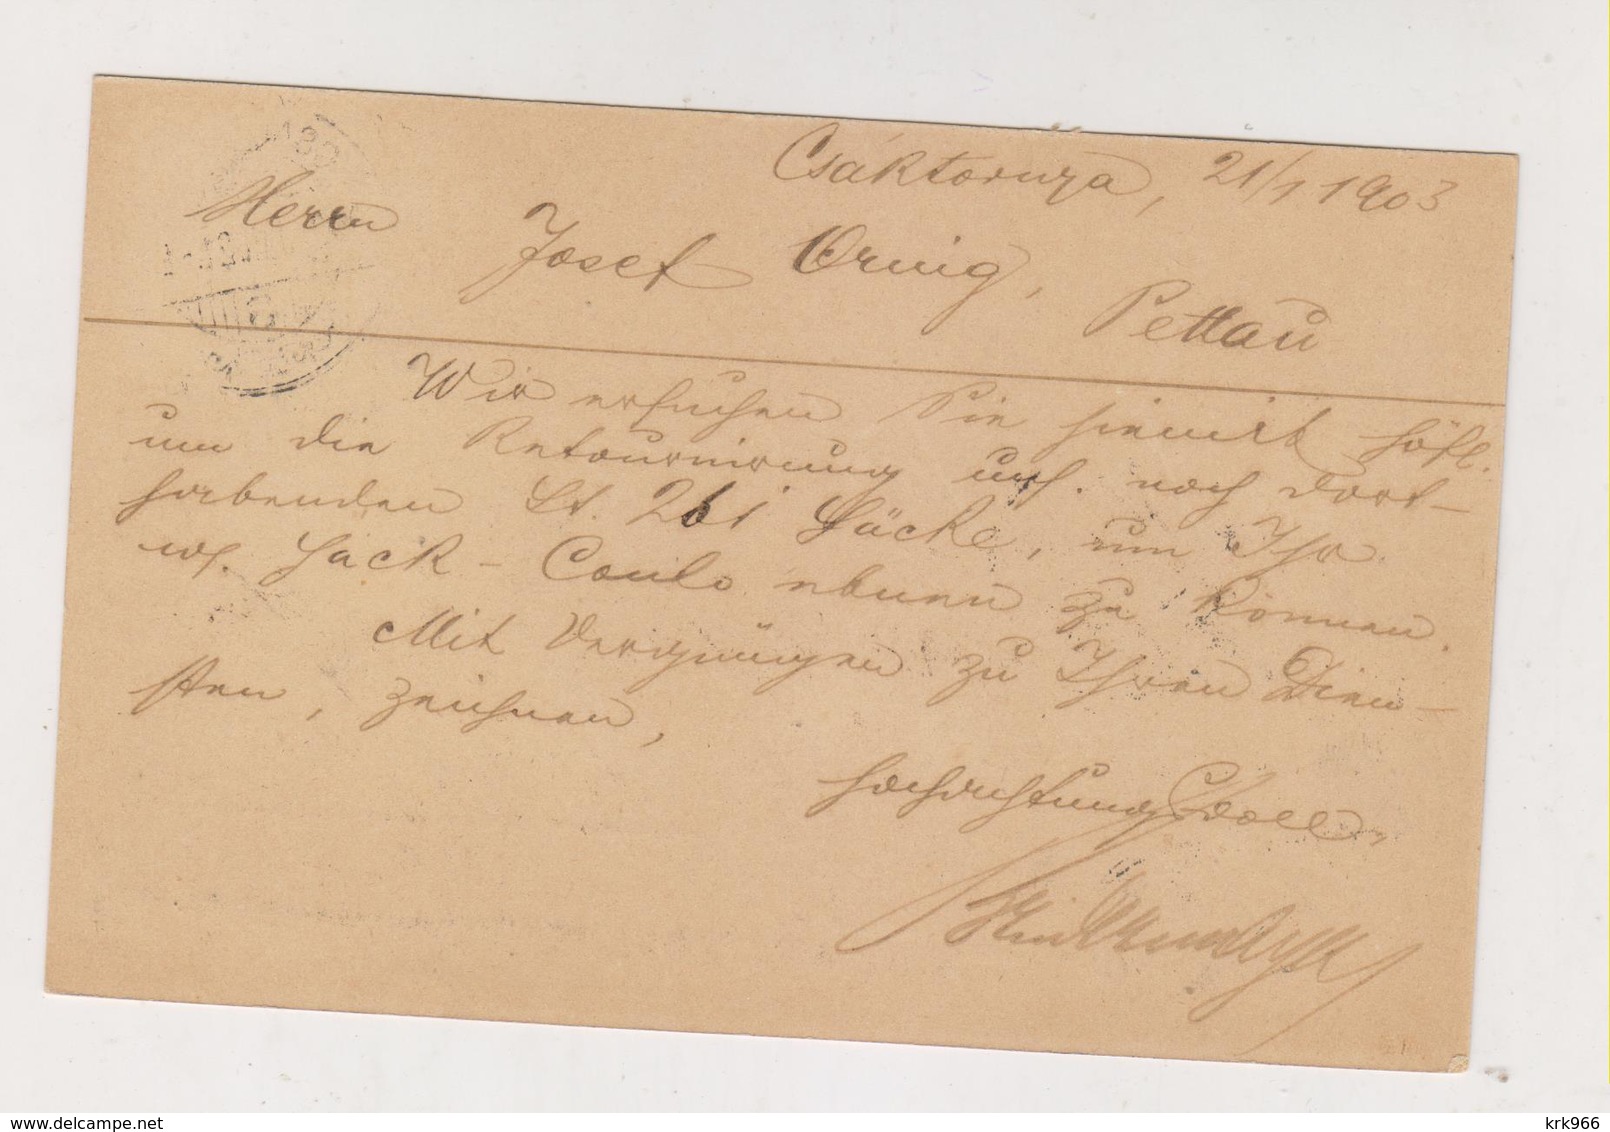 Csáktornya, 21/1 1903
Herrn
Josef Ornig,
Pettau
Wir ersuchen Sie hiemit höfl.
um die Retournirung uns. noch dort
habenden St. 261 Säcke, um Ihr
w. Sack-Conto ebnen zu können.
Mit Vergnügen zu Ihren Dien-
sten, zeichnen,
hochachtungsvoll
krk966